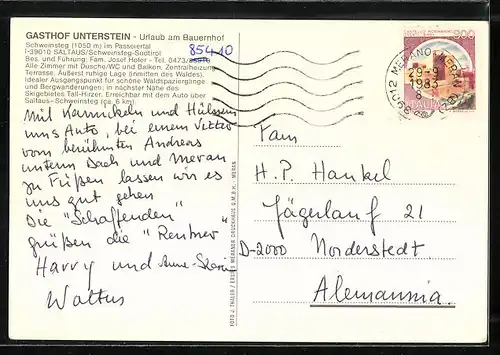 GASTHOF UNTERSTEIN - Urlaub am Bauernhof
Schweinsteg (1050 m) im Passeiertal
I-39010 SALTAUS/Schweinsteg-Südtirol
Bes. und Führung: Fam. Josef Hofer - Tel. 0473/
85410
Alle Zimmer mit Dusche/WC und Balkon. Zentralheizung
Terrasse. Äußerst ruhige Lage (inmitten des Waldes).
Idealer Ausgangspunkt für schöne Waldspaziergänge
und Bergwanderungen; in nächster Nähe des
Skigebietes Tall-Hirzer. Erreichbar mit dem Auto über
Saltaus-Schweinsteg (ca. 6 km).
Mit Karnickeln und
ums Auto, bei einem
vom berühmten Andreas
unterm Dach und Meran
zu Füßen lassen wir es
uns gut gehen
Die "Schaffenden"
grüßen die "Rentner"
Harry und
FOTO J. THALER / ERSTES MERANER DRUCKHAUS G.M.B.H. - MERAN
900
39012 MERANO-MERAN (BZ)
29-9
1983
ITALIA
Fam
H.P. Hankel
Jägerlauf 21
D-2000 Norderstedt
Alemannia